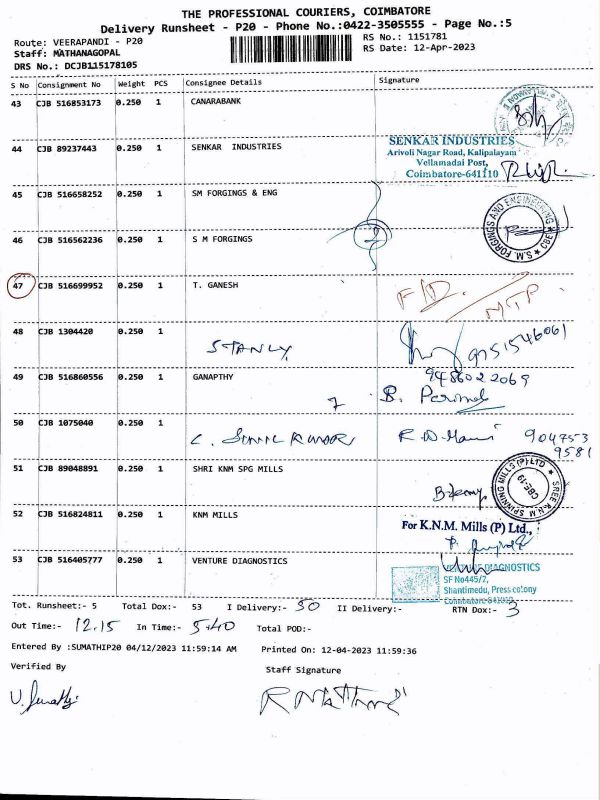 THE PROFESSIONAL COURIERS, COIMBATORE
Delivery Runsheet - P20 - Phone No.:0422-3505555 - Page No.:5
Route: VEERAPANDI - P20
RS No.: 1151781
Staff: MATHANAGOPAL
RS Date: 12-Apr-2023
DRS No.: DCJB115178105
S No Consignment No Weight PCS Consignee Details Signature
43 CJB 516853173 0.250 1 CANARABANK
44 CJB 89237443 0.250 1 SENKAR INDUSTRIES
SENKAR INDUSTRIES
Arivoli Nagar Road, Kalipalayam
Vellamadai Post,
Coimbatore-641110
45 CJB 516658252 0.250 1 SM FORGINGS & ENG
S.M. FORGINGS AND ENGINEERING
46 CJB 516562236 0.250 1 S M FORGINGS
47 CJB 516699952 0.250 1 T. GANESH
48 CJB 1304420 0.250 1
STANLY
9751546061
49 CJB 516860556 0.250 1 GANAPTHY
9486022069
50 CJB 1075040 0.250 1
904753
9581
51 CJB 89048891 0.250 1 SHRI KNM SPG MILLS
SPINNING MILLS (P) LTD
CBE-19
52 CJB 516824811 0.250 1 KNM MILLS
For K.N.M. Mills (P) Ltd.,
53 CJB 516405777 0.250 1 VENTURE DIAGNOSTICS
DIAGNOSTICS
SF No445/7,
Shantimedu, Press colony
Tot. Runsheet:- 5 Total Dox:- 53 I Delivery:- 50 II Delivery:- RTN Dox:- 3
Out Time:- 12.15 In Time:- 5.40 Total POD:-
Entered By :SUMATHIP20 04/12/2023 11:59:14 AM Printed On: 12-04-2023 11:59:36
Verified By Staff Signature